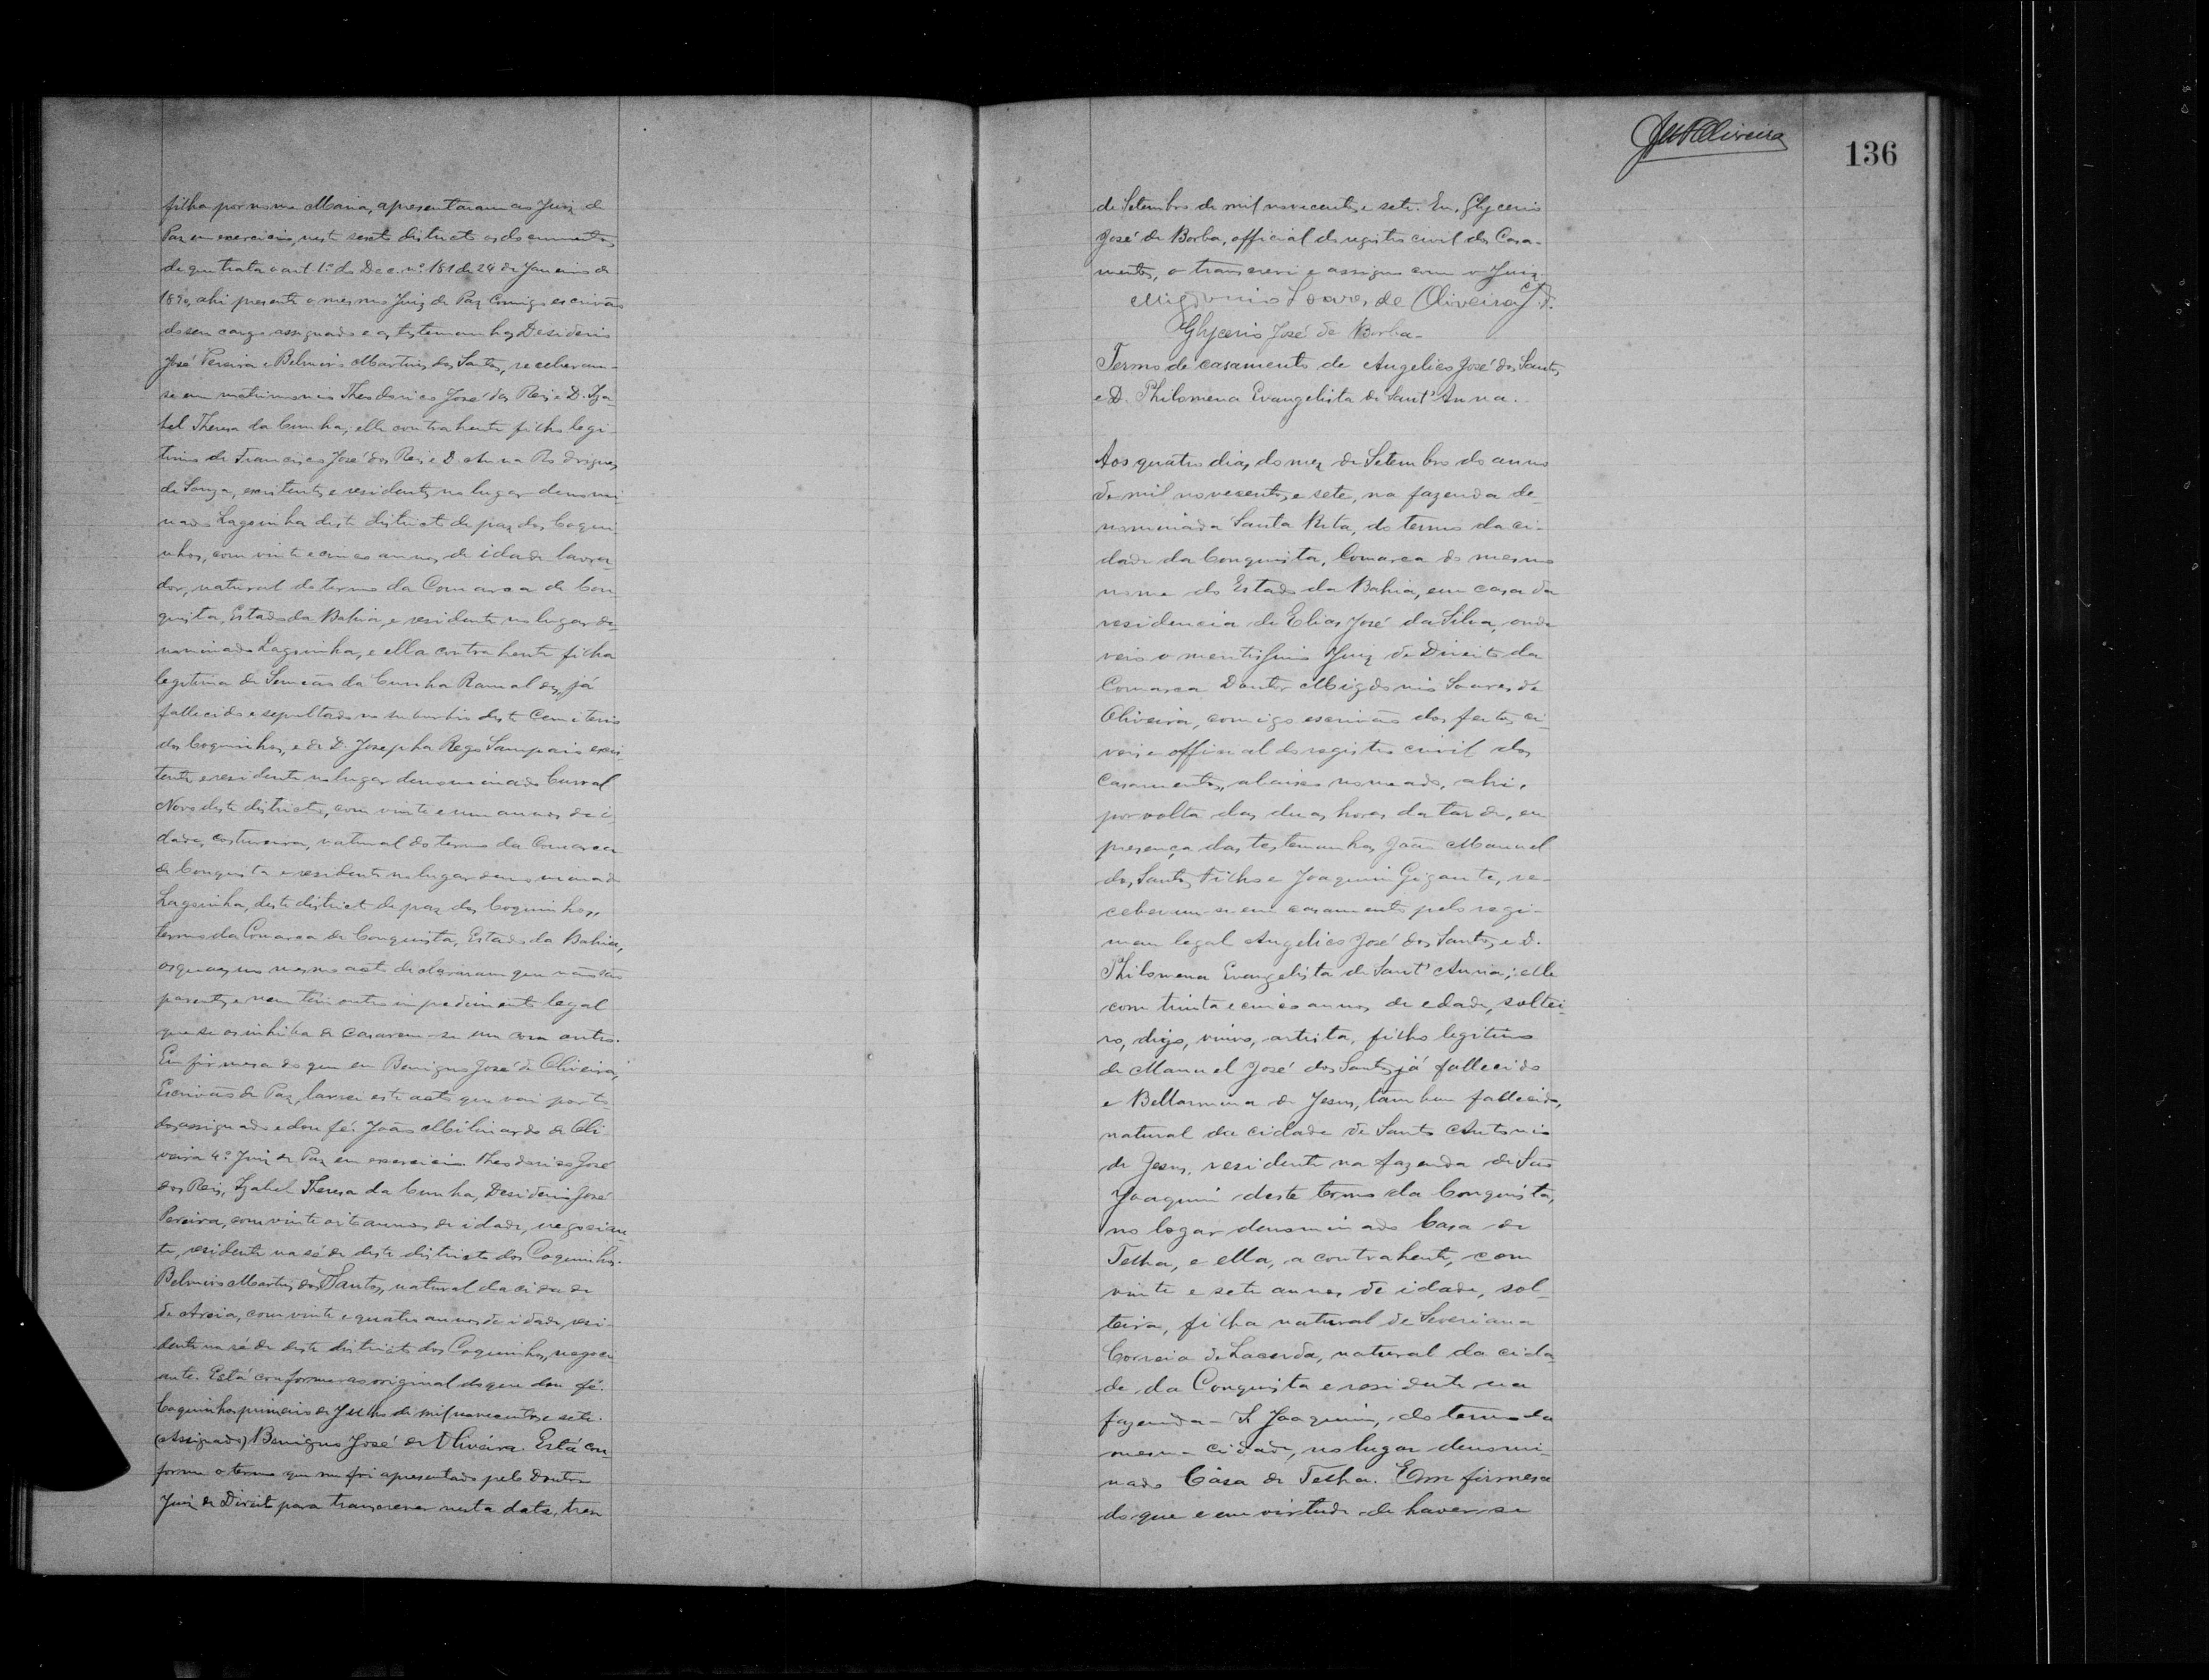 filha por nome Maria, apresentaram ao Juiz de
Paz em exercicio, neste sexto districto os documentos
de que trata o art. 1º do Dec. nº 181 de 24 de Janeiro de
1890, ahi presente o mesmo Juiz de Paz Comigo escrivão
do seu cargo assignado e as testemunhas Desiderio
José Pereira e Belmiro Martins dos Santos, receberam-
se em matrimonio Theodorico José dos Reis e D. Iza-
bel Thereza da Cunha; elle contrahente filho legi-
timo de Francisco José dos Reis e D. Anna Rodrigues
de Souza, existentes e residentes no lugar denomi-
nado Lagoinha deste districto de paz dos Coqui-
nhos, com vinte e cinco annos de idade lavra-
dor, natural do termo da Comarca de Con-
quista, Estado da Bahia, e residente no lugar de-
nominado Lagoinha, e ella contrahente filha
legitima de Simeão da Cunha Ramaldes, já
fallecido e sepultado no suburbio deste Cemiterio
dos Coquinhos, e de D. Josepha Rego Sampaio exis-
tente e residente no lugar denominado Curral
Novo deste districto, com vinte e um annos de i-
dade, costureira, natural do termo da Comarca
de Conquista e residente no lugar denominado
Lagoinha, deste districto de paz dos Coquinhos,
termo da Comarca de Conquista, Estado da Bahia,
os quaes no mesmo acto declararam que não são
parentes e nem têm outro impedimento legal
que se os inhiba de casarem-se um com outro.
Em firmesa do que eu Benigno José de Oliveira,
Escrivão de Paz, lavrei este acto que vai por to-
dos assignado e dou fé. João Miliciardo de Oli-
veira 4º Juiz de Paz em exercicio Theodorico José
dos Reis, Izabel Thereza da Cunha, Desiderio José
Pereira, com vinte oito annos de idade, negocian-
te, residente na séde deste districto dos Coquinhos.
Belmiro Martins dos Santos, natural da cidade
de Areia, com vinte e quatro annos de idade, resi-
dente na séde deste districto dos Coquinhos, negoci-
ante. Está conforme ao original do que dou fé.
Coquinhos primeiro de Julho de mil novecentos e sete.
(Assignado) Benigno José de Oliveira. Está con-
forme o termo que me foi apresentado pelo Doutor
Juiz de Direito para transcrever nesta data, tres
136
de Setembro de mil novecentos e sete. Eu, Glycerio
José de Borba, official do registro civil dos Casa-
mentos, o transcrevi e assigno com o Juiz.
Migdonio Soares de Oliveira J. D.
Glycerio José de Borba-
Termo de casamento de Angelico José dos Santos
e D. Philomena Evangelista de Sant'Anna.
Aos quatro dias do mez de Setembro do anno
de mil novecentos e sete, na fazenda de-
nominada Santa Rita, do termo da ci-
dade da Conquista, Comarca do mesmo
nome do Estado da Bahia, em casa da
residencia de Elias José da Silva, onde
veio o meritissimo Juiz de Direito da
Comarca Doutor Migdonio Soares de
Oliveira, comigo escrivão dos feitos ci-
veis e official do registro civil dos
Casamentos, abaixo nomeado, ahi,
por volta das duas horas da tarde, em
presença das testemunhas João Manuel
dos Santos Filho e Joaquim Gigante, re-
ceberam-se em casamento pelo regi-
men legal Angelico José dos Santos e D.
Philomena Evangelista de Sant'Anna; elle
com trinta e cinco annos de edade, soltei-
ro, digo, viuvo, artista, filho legitimo
de Manuel José dos Santos já fallecido
e Bellarmina de Jesus, tambem fallecida,
natural da cidade de Santo Antonio
de Jesus, residente na fazenda de São
Joaquim deste termo da Conquista,
no logar denominado Casa de
Telha, e ella, a contrahente, com
vinte e sete annos de idade, sol-
teira, filha natural de Severiana
Correia de Lacerda, natural da cida-
de da Conquista e residente na
fazenda- S. Joaquim, do termo da
mesma cidade, no lugar denomi-
nado Casa de Telha. Em firmesa
do que e em virtude de haver-se